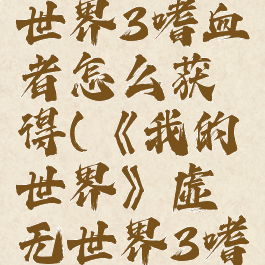 世界3嗜血
者怎么获
得(《我的
世界》虚
无世界3嗜